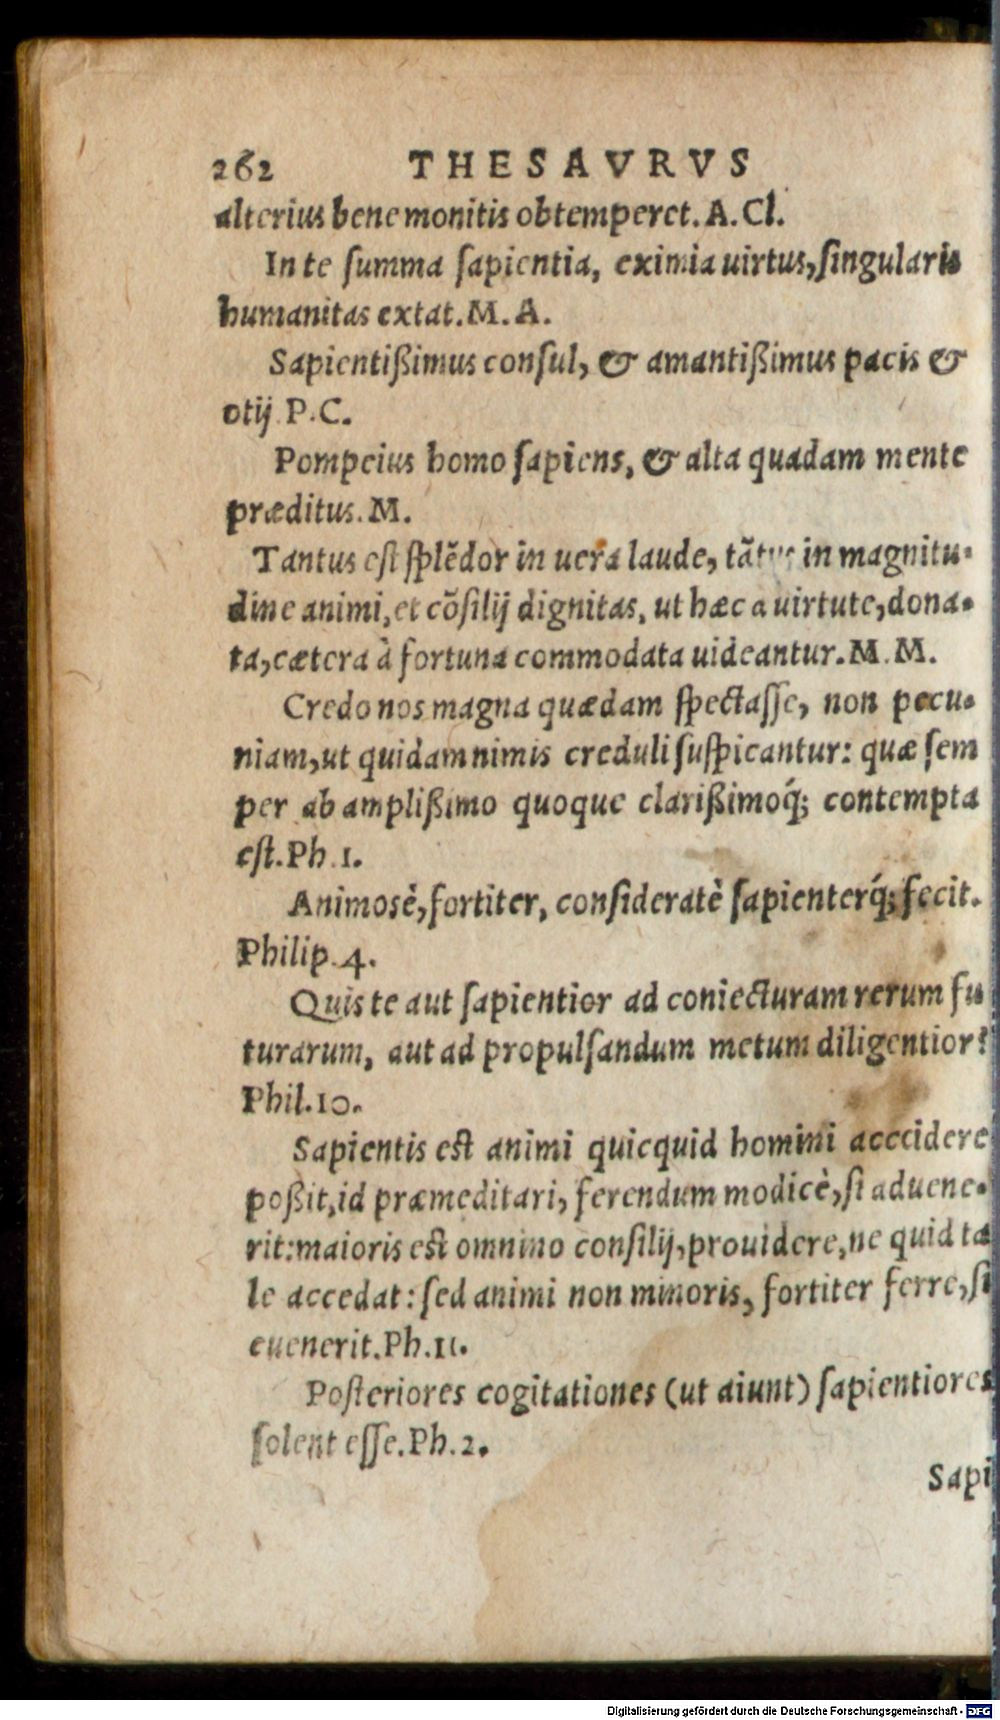 262 THESAVRVS
alterius bene monitis obtemperet. A. Cl.
In te ſumma ſapientia, eximia uirtus, ſingularis
humanitas extat. M. A.
Sapientißimus conſul, & amantißimus pacis &
otij P. C.
Pompeius homo ſapiens, & alta quadam mente
præditus. M.
Tantus eſt ſplēdor in uera laude, tãtus in magnitu-
dine animi, et cõſilij dignitas, ut hæc a uirtute, dona-
ta, cætera à fortuna commodata uideantur. M. M.
Credo nos magna quædam ſpectaſſe, non pecu-
niam, ut quidam nimis creduli ſuſpicantur: quæ ſem
per ab amplißimo quoque clarißimoq́; contempta
eſt. Ph. 1.
Animosè, fortiter, conſideratè ſapienterq́; fecit.
Philip. 4.
Quis te aut ſapientior ad coniecturam rerum fu
turarum, aut ad propulſandum metum diligentior?
Phil. 10.
Sapientis eſt animi quicquid homini acccidere
poßit, id præmeditari, ferendum modicè, ſi aduene-
rit: maioris eſt omnino conſilij, prouidere, ne quid ta
le accedat: ſed animi non minoris, fortiter ferre, ſi
euenerit. Ph. 11.
Poſteriores cogitationes (ut aiunt) ſapientiores
ſolent eſſe. Ph. 2.
Sapi
Digitalisierung gefördert durch die Deutsche Forschungsgemeinschaft - DFG